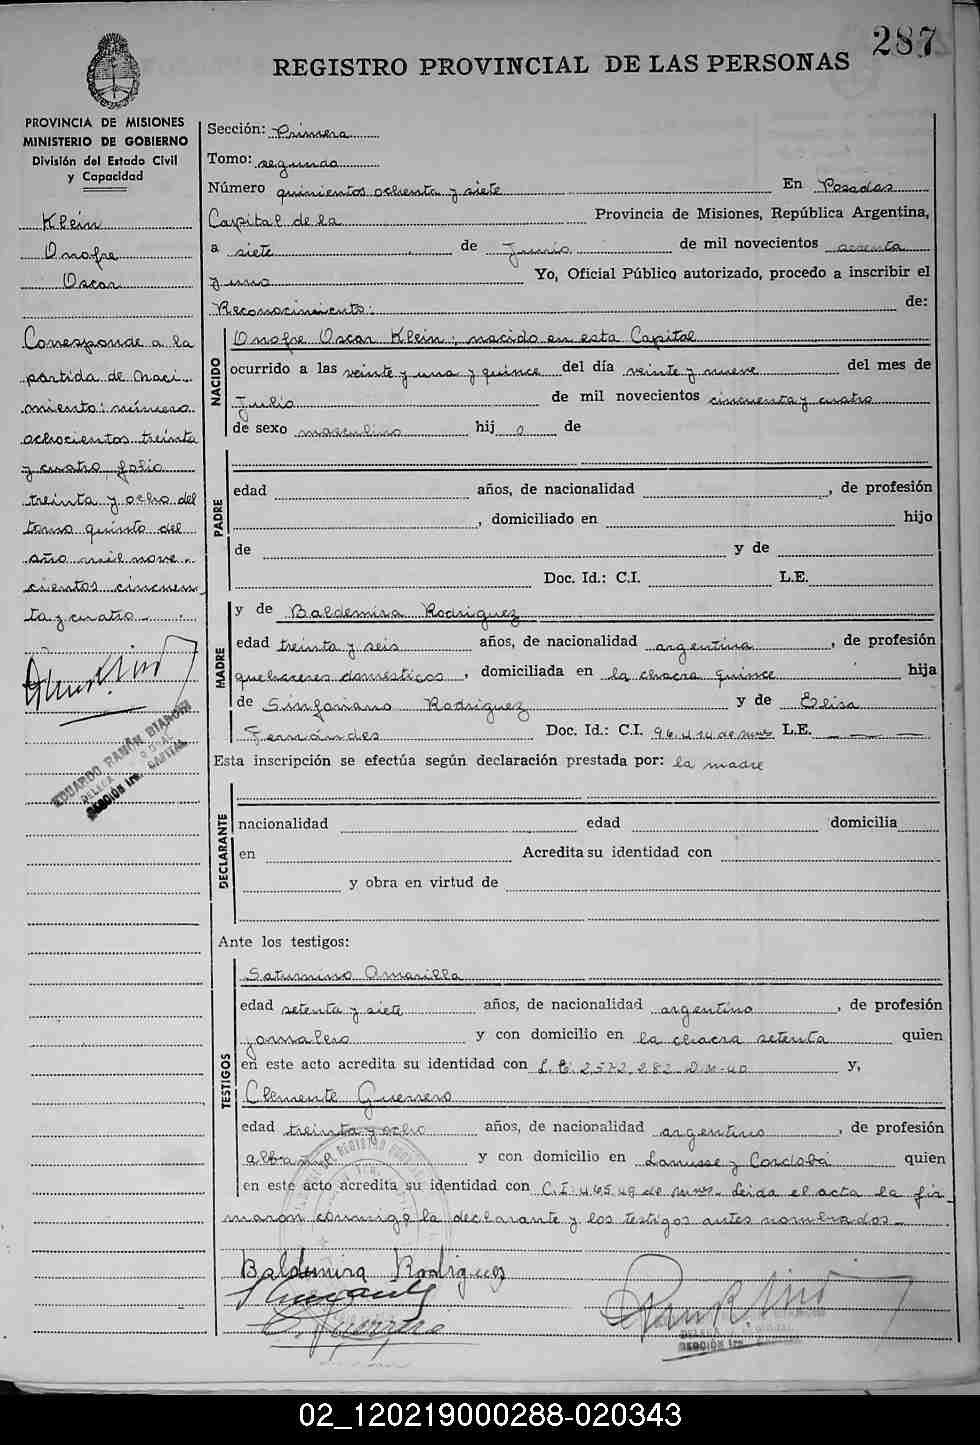 287
REGISTRO PROVINCIAL DE LAS PERSONAS
PROVINCIA DE MISIONES
MINISTERIO DE GOBIERNO
División del Estado Civil
y Capacidad
Klein
Onofre
Oscar
Corresponde a la
partida de naci
miento: número
ochocientos treinta
y cuatro folio
treinta y ocho del
tomo quinto del
año mil nove
cientos cincuen
ta y cuatro
EDUARDO RAMÓN
SECCIÓN 1ra. CAPITAL
Sección: Primera
Tomo: segundo
Número quinientos ochenta y siete En Posadas
Capital de la Provincia de Misiones, República Argentina,
a siete de Junio de mil novecientos sesenta
y uno Yo, Oficial Público autorizado, procedo a inscribir el
Reconocimiento: de:
NACIDO
Onofre Oscar Klein; nacido en esta Capital
ocurrido a las veinte y una y quince del día veinte y nueve del mes de
Julio de mil novecientos cincuenta y cuatro
de sexo masculino hij o de
PADRE
edad años, de nacionalidad , de profesión
, domiciliado en hijo
de y de
Doc. Id.: C.I. L.E.
MADRE
y de Baldemira Rodriguez
edad treinta y seis años, de nacionalidad argentina , de profesión
quehaceres domésticos , domiciliada en la chacra quince hija
de Sinforiano Rodriguez y de Elisa
Fernández Doc. Id.: C.I. 96.414 de Mnes L.E.
Esta inscripción se efectúa según declaración prestada por: la madre
DECLARANTE
nacionalidad edad domicilia
en Acredita su identidad con
y obra en virtud de
Ante los testigos:
TESTIGOS
Saturnino Amarilla
edad setenta y siete años, de nacionalidad argentino , de profesión
jornalero y con domicilio en la chacra setenta quien
en este acto acredita su identidad con L.E. 2.572.282 D.M. 40 y,
Clemente Guerrero
edad treinta y ocho años, de nacionalidad argentino , de profesión
albañil y con domicilio en Lanusse y Cordoba quien
en este acto acredita su identidad con C.I. 465.49 de Mnes. Leida el acta la fir
maron conmigo la declarante y los testigos antes nombrados
Baldemira Rodriguez
C. Guerrero
SECCIÓN 1ra.
02_120219000288-020343